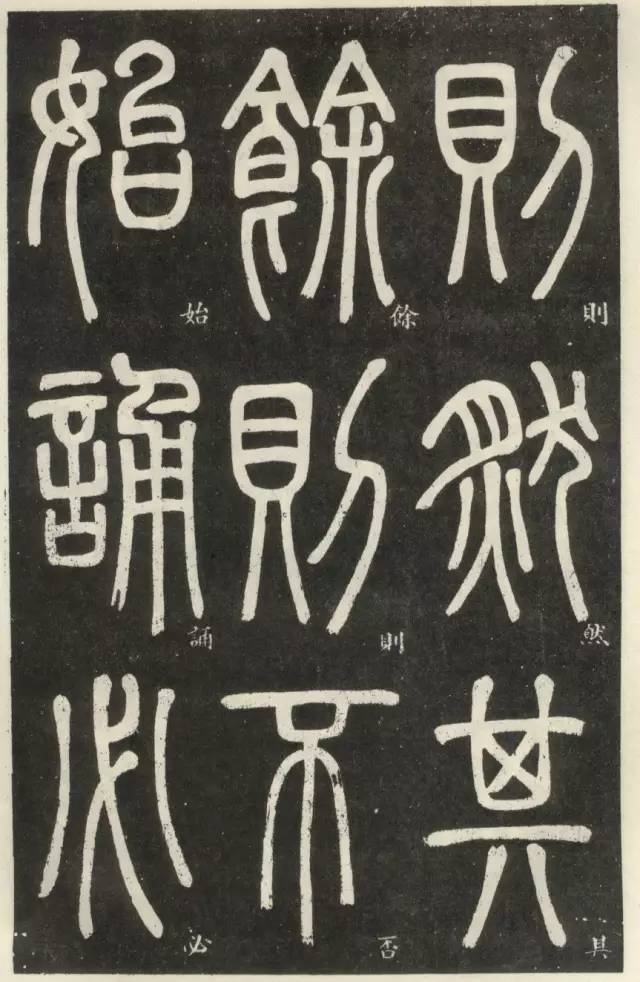 則然其
則然其
餘則不
餘則否
始誦必
始誦必